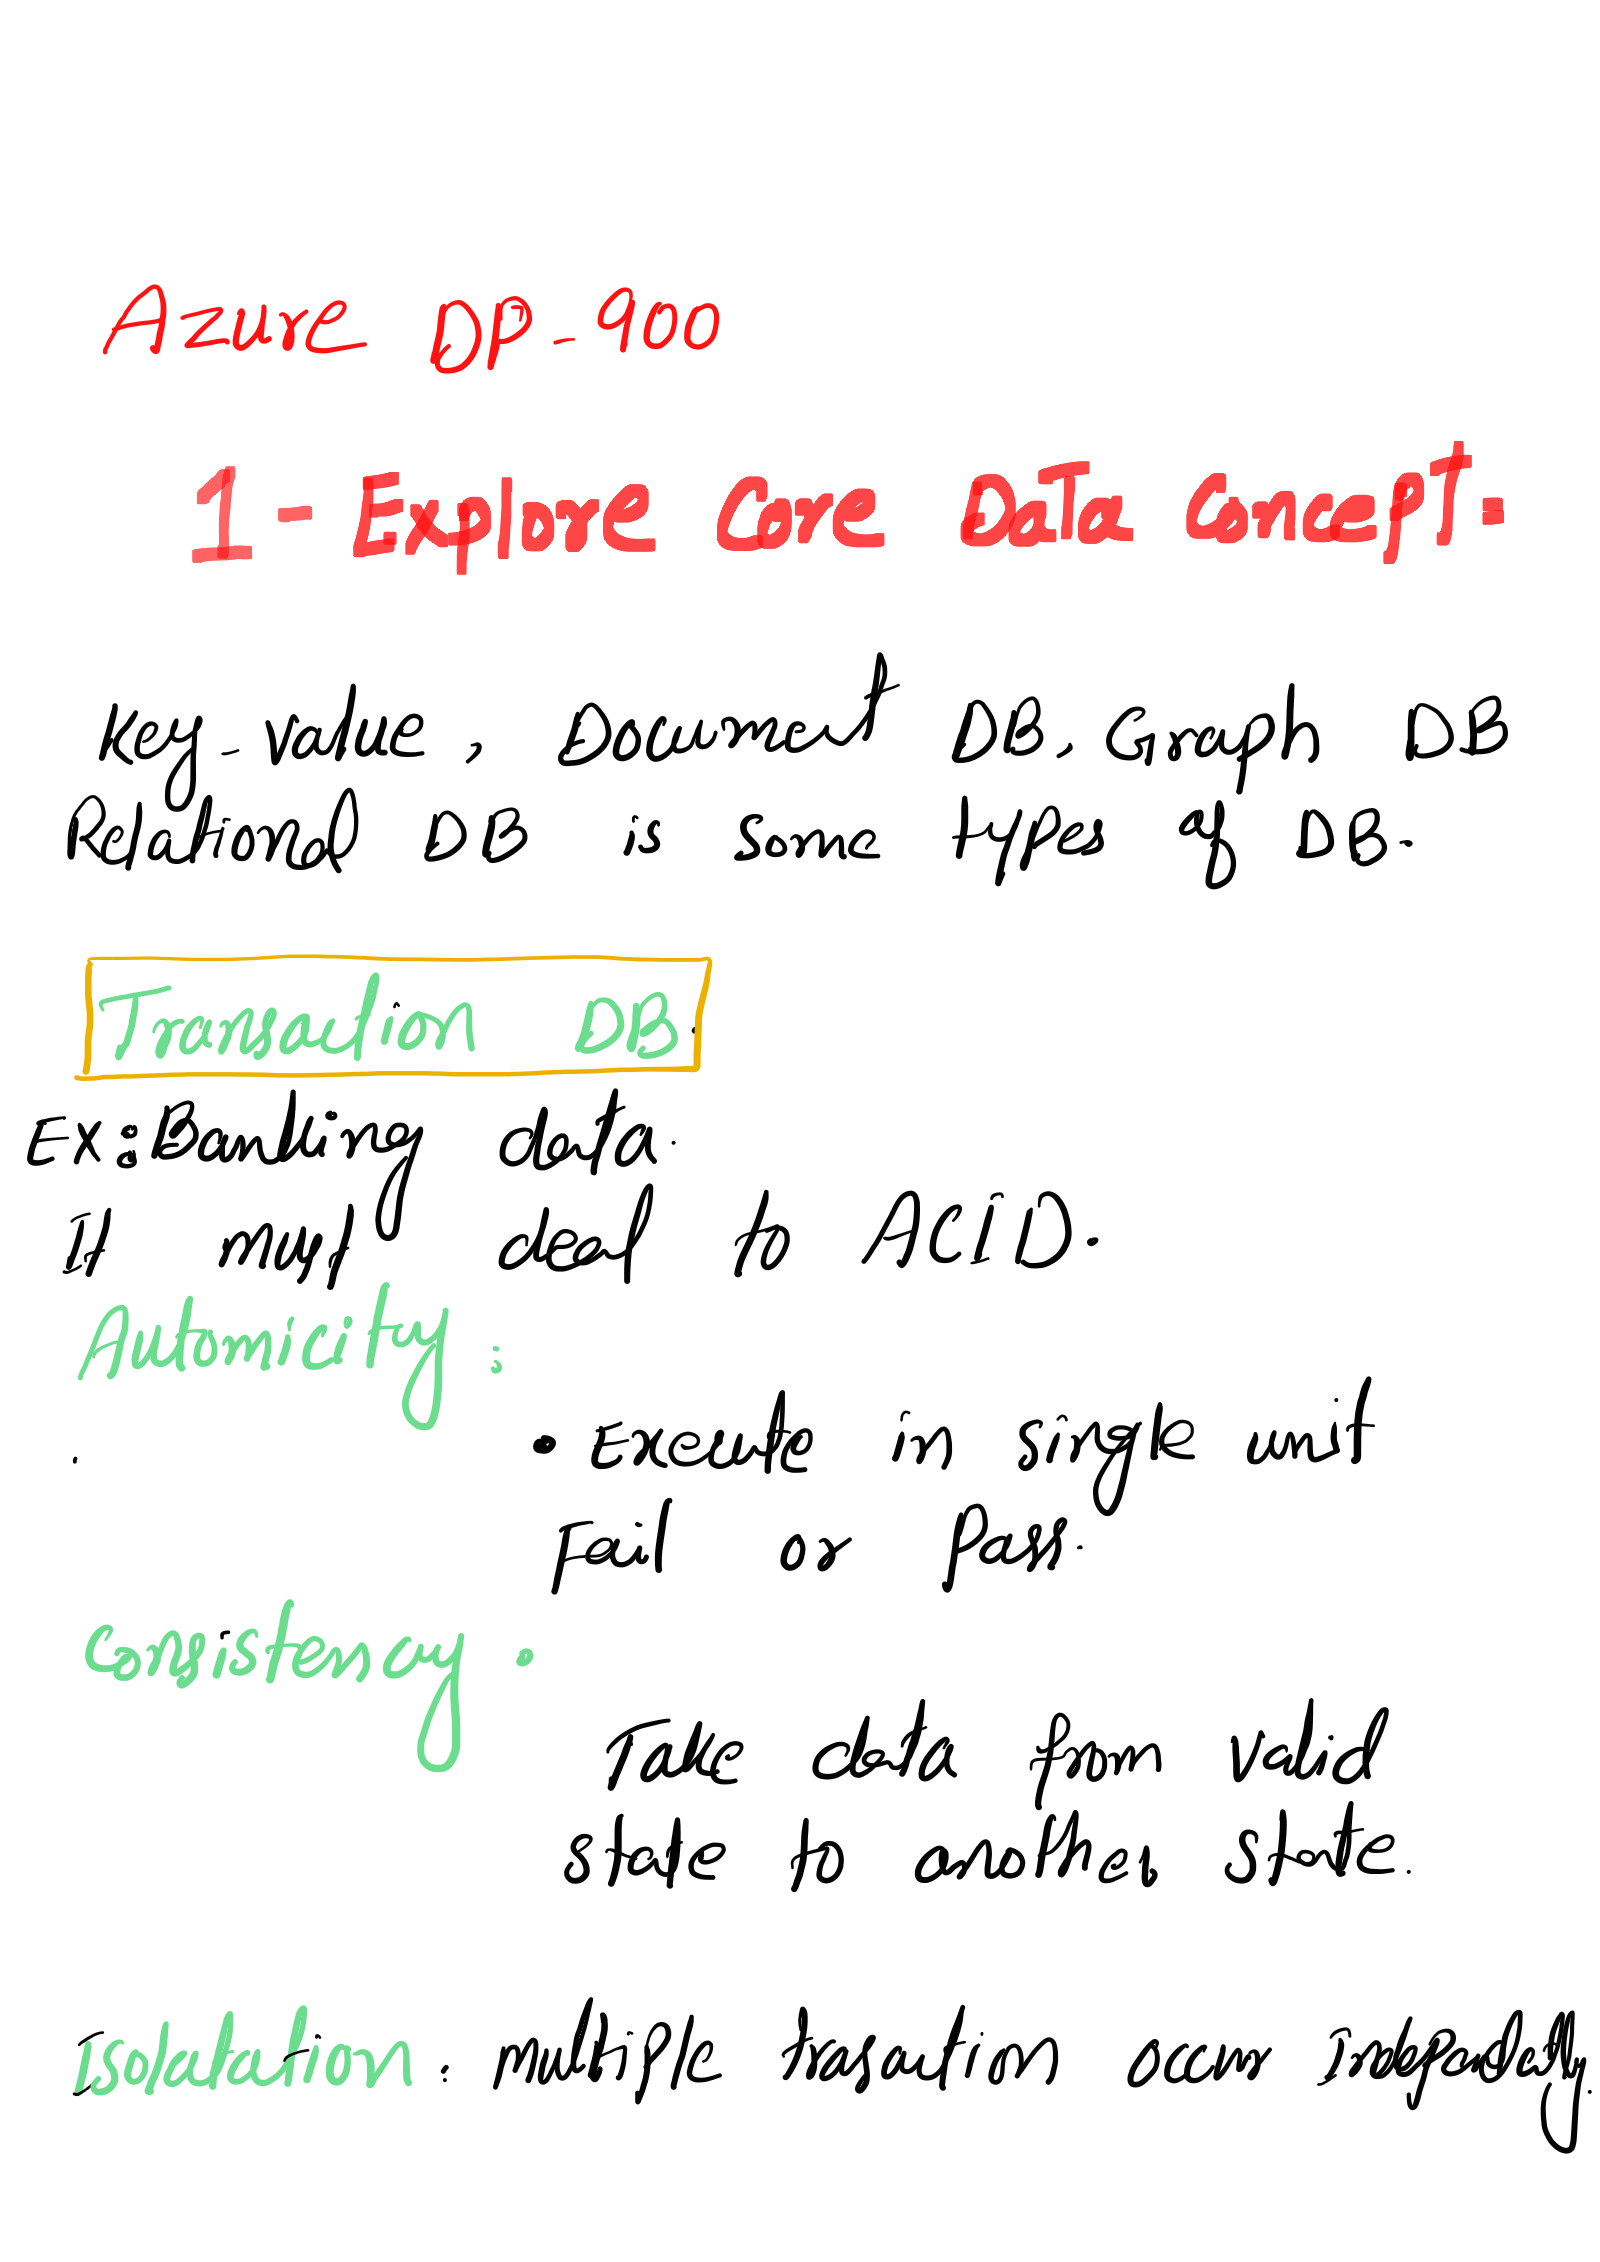 Azure DP-900
1- Explore Core Data Concept:
Key-value, Document DB, Graph DB
Relational DB is some types of DB.
Transaction DB.
Ex: Banking data.
It must deal to ACID.
Automicity:
• Execute in single unit
Fail or Pass.
Consistency.
Take data from valid
state to another state.
Isolatation: multiple trasaction occur Independatly.